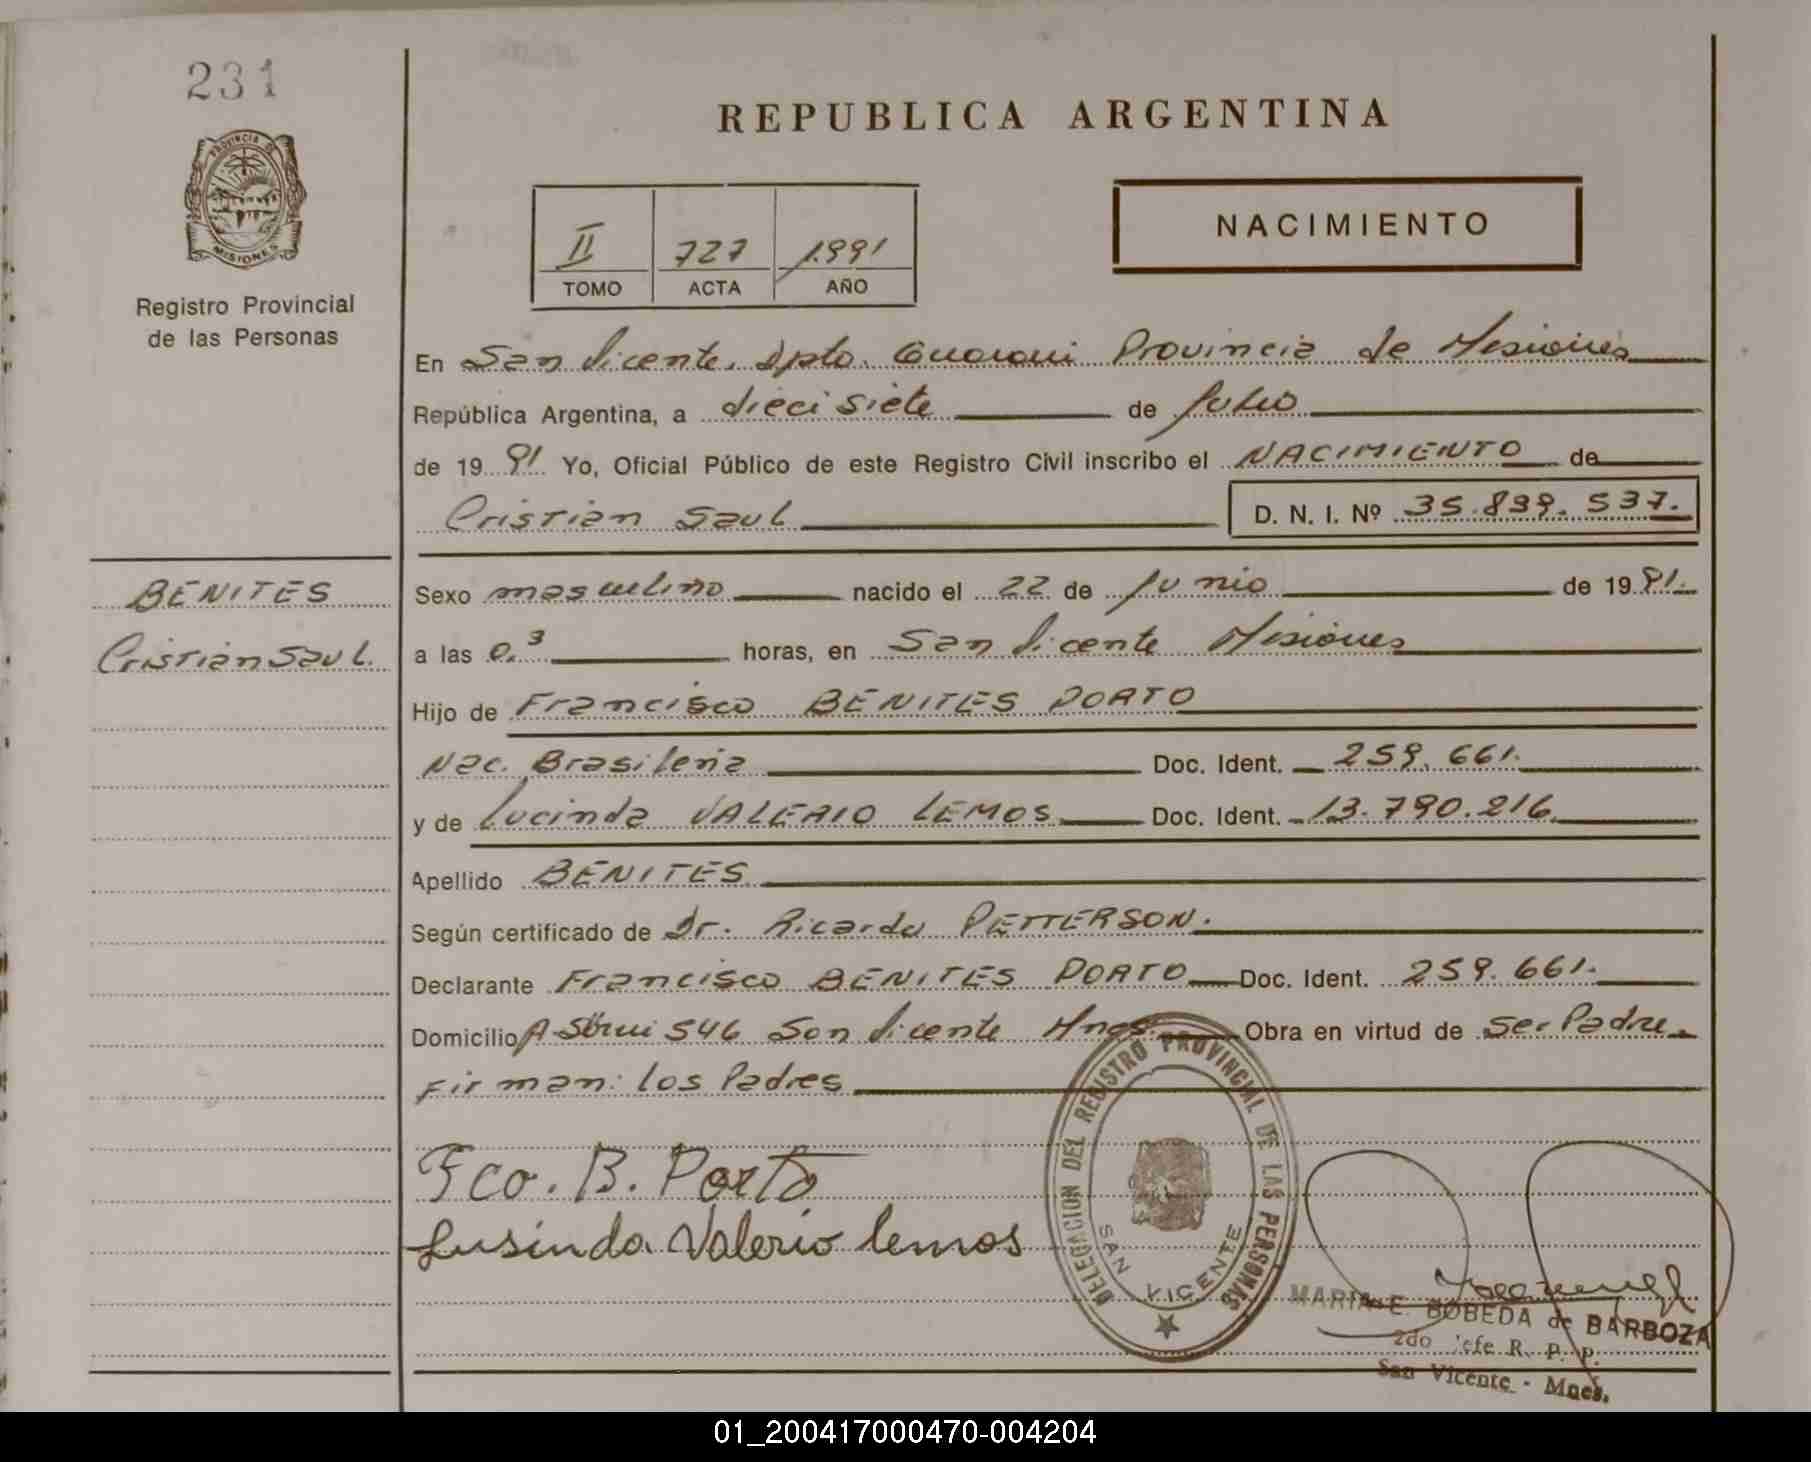 231
REPUBLICA ARGENTINA
PROVINCIA DE
MISIONES
Registro Provincial
de las Personas
II 727 1991
TOMO ACTA AÑO
NACIMIENTO
En San Vicente, Dpto. Guarani Provincia de Misiones
República Argentina, a dieci siete de Julio
de 19 91 Yo, Oficial Público de este Registro Civil inscribo el NACIMIENTO de
Cristian Saul D. N. I. Nº 35.899.537.
BENITES
Cristian Saul
Sexo masculino nacido el 22 de Junio de 19 91.
a las 0,3 horas, en San Vicente Misiones
Hijo de Francisco BENITES PORTO
Nac. Brasileña Doc. Ident. 259.661.
y de Lucinda VALERIO LEMOS Doc. Ident. 13.790.216
Apellido BENITES
Según certificado de Dr. Ricardo PETTERSON.
Declarante Francisco BENITES PORTO Doc. Ident. 259.661.
Domicilio 546 San Vicente Mnes. Obra en virtud de Ser Padre
Firman: los Padres
Fco. B. Porto
Lusinda Valerio lemos
DELEGACION DEL REGISTRO PROVINCIAL DE LAS PERSONAS
SAN VICENTE
MARIA E. BOBEDA de BARBOZA
2do Jefe R. P. P.
San Vicente - Mnes.
01_200417000470-004204